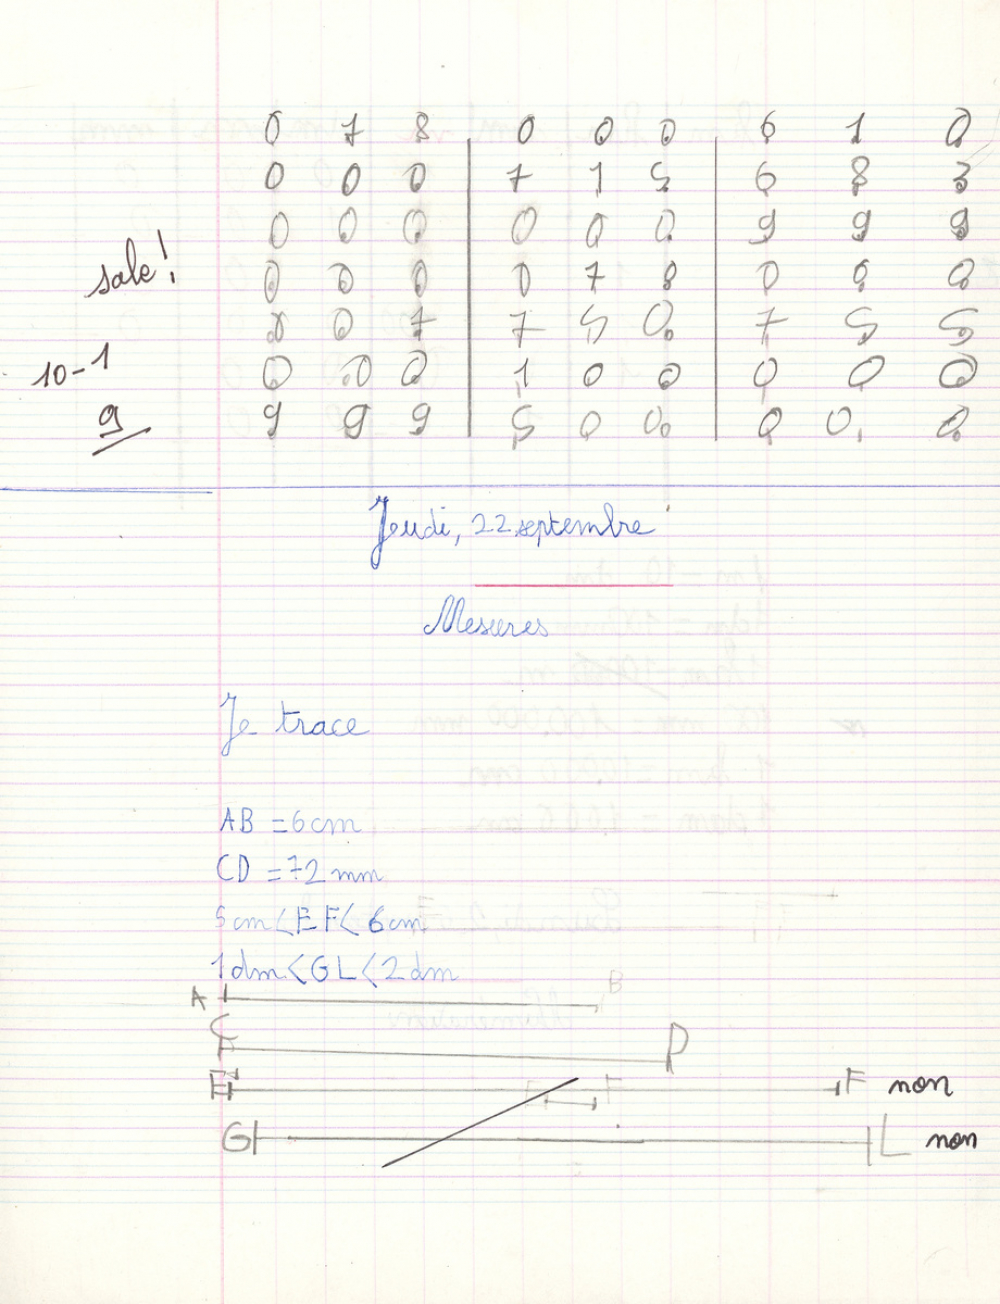 0 7 8 0 0 0 6 1 0
0 0 0 7 1 5 6 8 3
0 0 0 0 0 0 9 9 9
sale!
0 0 0 0 7 8 0 0 0
0 0 7 7 5 0. 7 5 5
10-1
0 .0 0 1 0 0 0 0 0
9
9 9 9 5 0 0. 0 0. 0.
Jeudi, 22 septembre
Mesures
Je trace
AB = 6 cm
CD = 72 mm
5 cm < EF < 6 cm
1 dm < GL < 2 dm
A B
C D
E F non
G L non